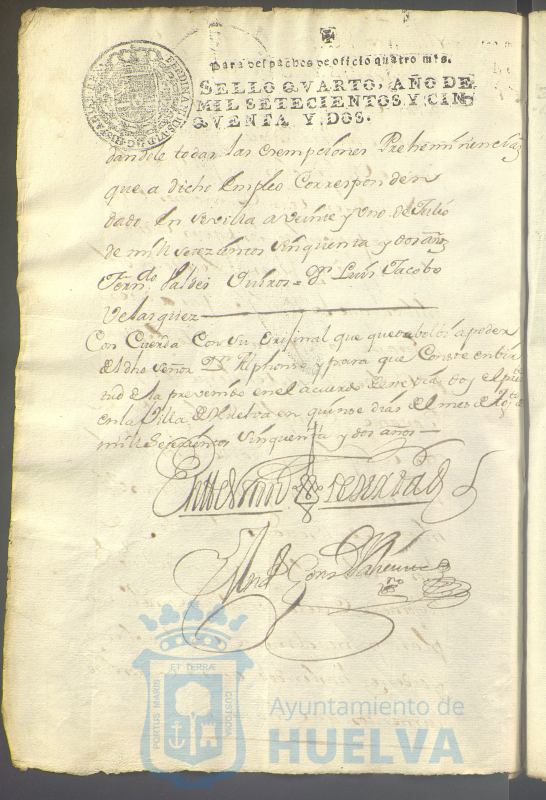 Para despachos de oficio quatro mrs.
SELLO QVARTO, AÑO DE
MIL SETECIENTOS Y CIN
QVENTA Y DOS.
dandole todas las exempciones Preheminencias
que a dicho Empleo Corresponden
dado en Sevilla a veinte y uno de Julio
de mill setezientos cinquenta y dos años
Ferndo Valdes Quiros = Dn Luis Jacobo
Velasquez
Con Cuerda Con su original que que debolbi a poder
del dho señor Dn Alphonso y para que Conste en bir
tud de lo prevenido en el acuerdo doy el
en la Villa de Huelva en quinse dias del mes de
mill setezientos cinquenta y dos años
En testimo de verdad
PORTUS MARIS
ET TERRÆ
CUSTODIA
Ayuntamiento de
HUELVA